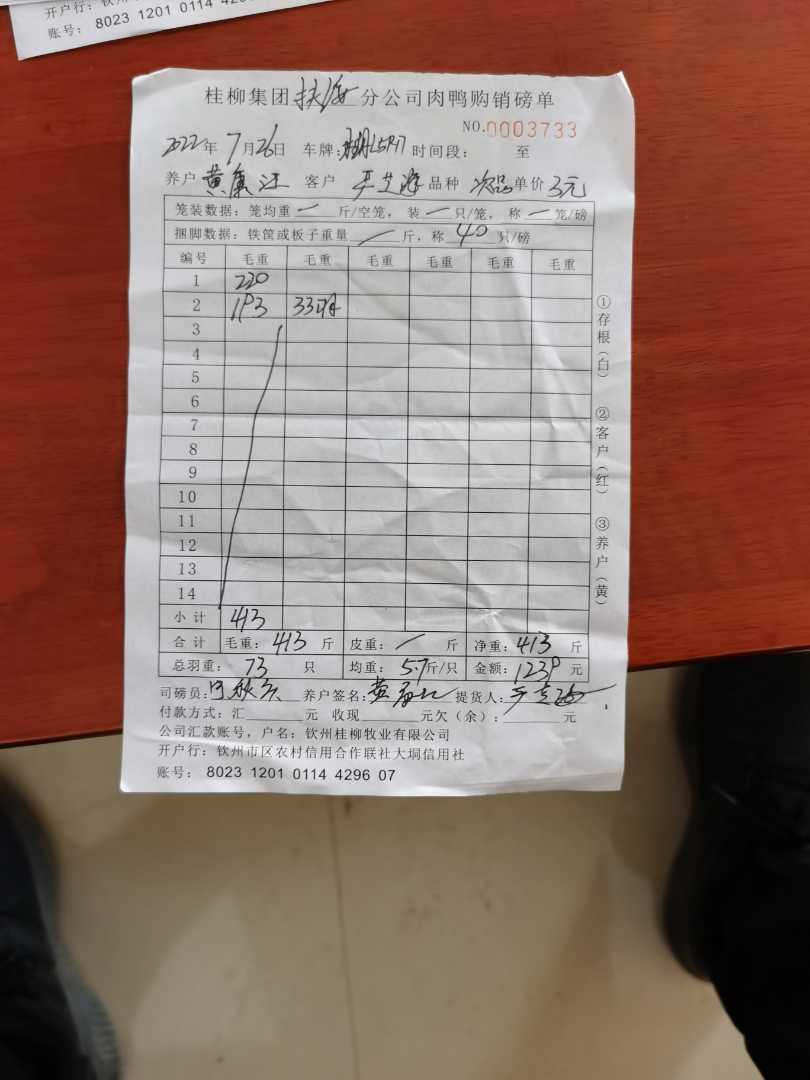 开户行：钦州
账号： 8023 1201 0114 4296
桂柳集团扶海分公司肉鸭购销磅单
NO.0003733
2022年 7月26日 车牌: 时间段: 至
养户 黄 江 客户 品种 次品 单价 3元
笼装数据: 笼均重 一 斤/空笼, 装 一 只/笼, 称 一 笼/磅
捆脚数据: 铁筐或板子重量 / 斤, 称 40 只/磅
编号 毛重 毛重 毛重 毛重 毛重 毛重
1 220
2 193 33羽
3
4
5
6
7
8
9
10
11
12
13
14
小计 413
合计 毛重: 413 斤 皮重: / 斤 净重: 413 斤
总羽重: 73 只 均重: 5.7斤/只 金额: 1239 元
司磅员: 养户签名: 黄 江 提货人:
付款方式: 汇 元 收现 元欠(余): 元
公司汇款账号, 户名: 钦州桂柳牧业有限公司
开户行: 钦州市区农村信用合作联社大垌信用社
账号: 8023 1201 0114 4296 07
①存根(白) ②客户(红) ③养户(黄)